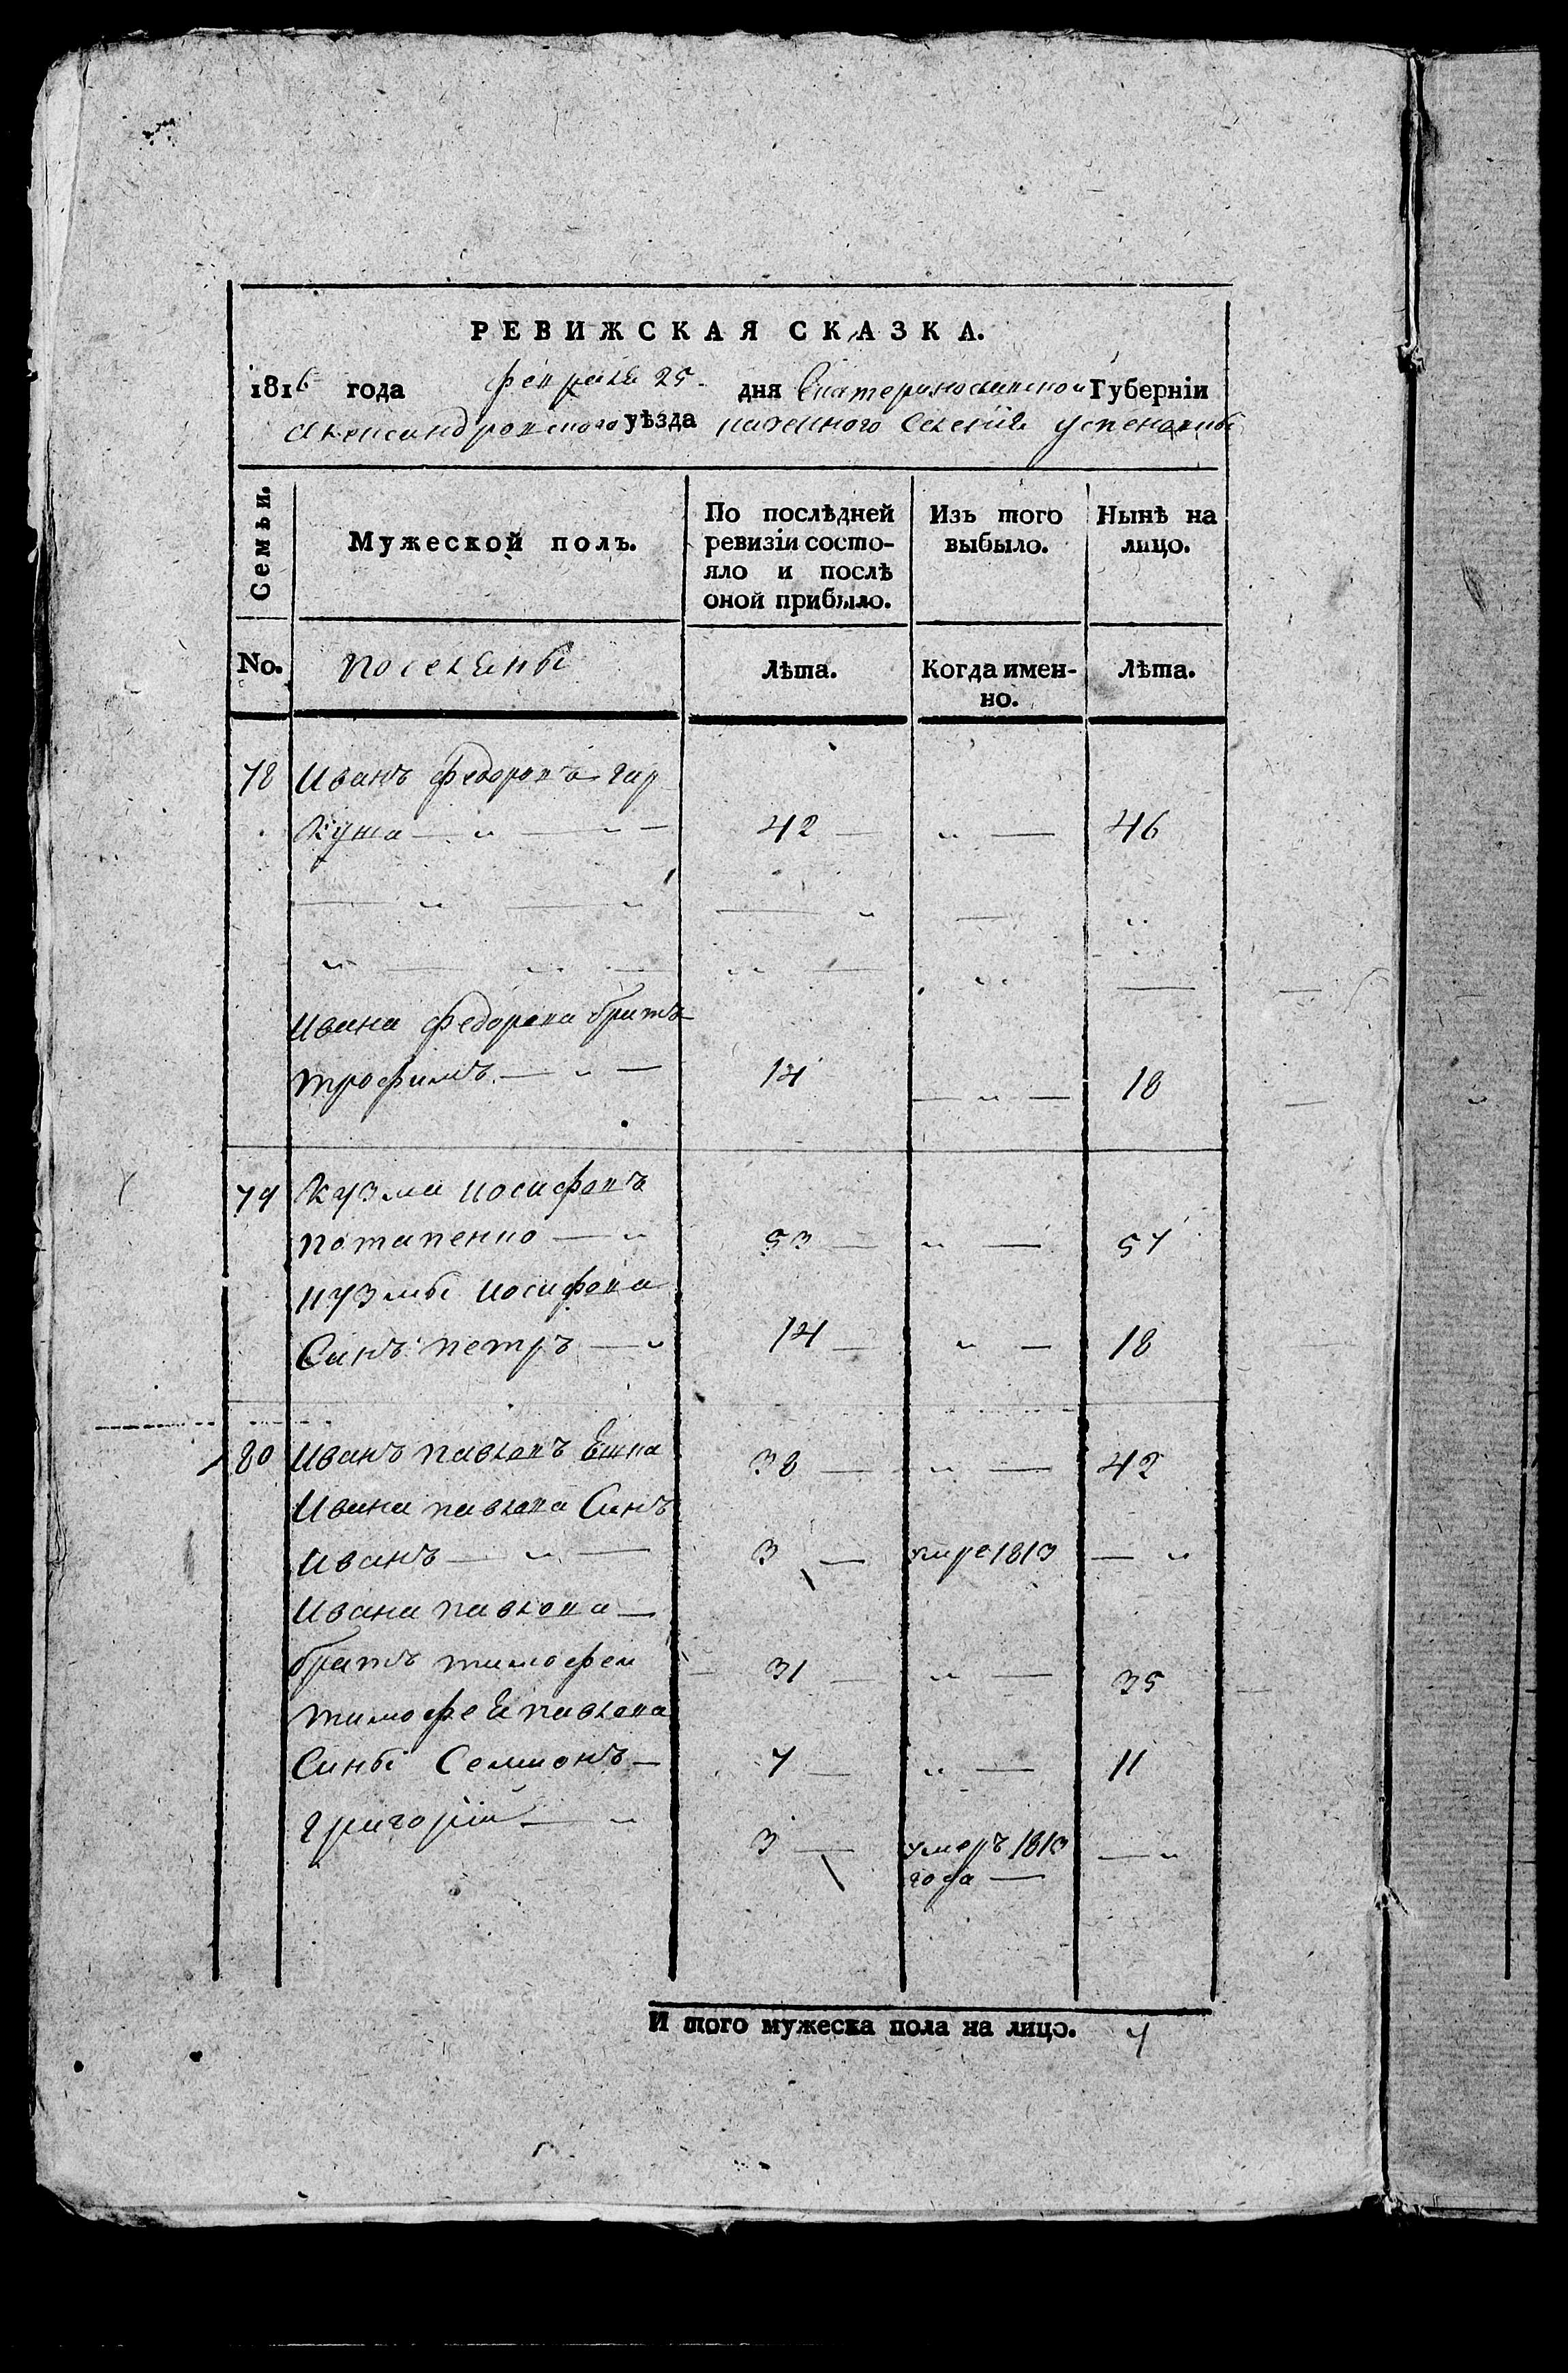 РЕВИЖСКАЯ СКАЗКА.
1816 года февраля 25 дня Екатеринославской Губернїи
Александровского уѣзда казенного Селенїя успеновки
Семьи.
Мужеской полъ.
По послѣдней ревизїи состо-
яло и послѣ
оной прибыло.
Изъ того
выбыло.
Нынѣ на
лицо.
No.
поселяны
Лѣта.
Когда имен-
но.
Лѣта.
78 Иванъ федоровъ гар
Куша 42 46
Ивана федорова братъ
трофимъ 14 18
79 Кузма иосифовъ
потапенко 53 57
кузмы иосифова
Синъ петръ 14 18
80 Иванъ павловъ 38 42
Ивана павлова Синъ
Иванъ 3 умре 1813
Ивана павлова
братъ тимофеи 31 35
тимофея павлова
Сины Семионъ 7 11
григорїй 3 умеръ 1813
года
И того мужеска пола на лицо. 7